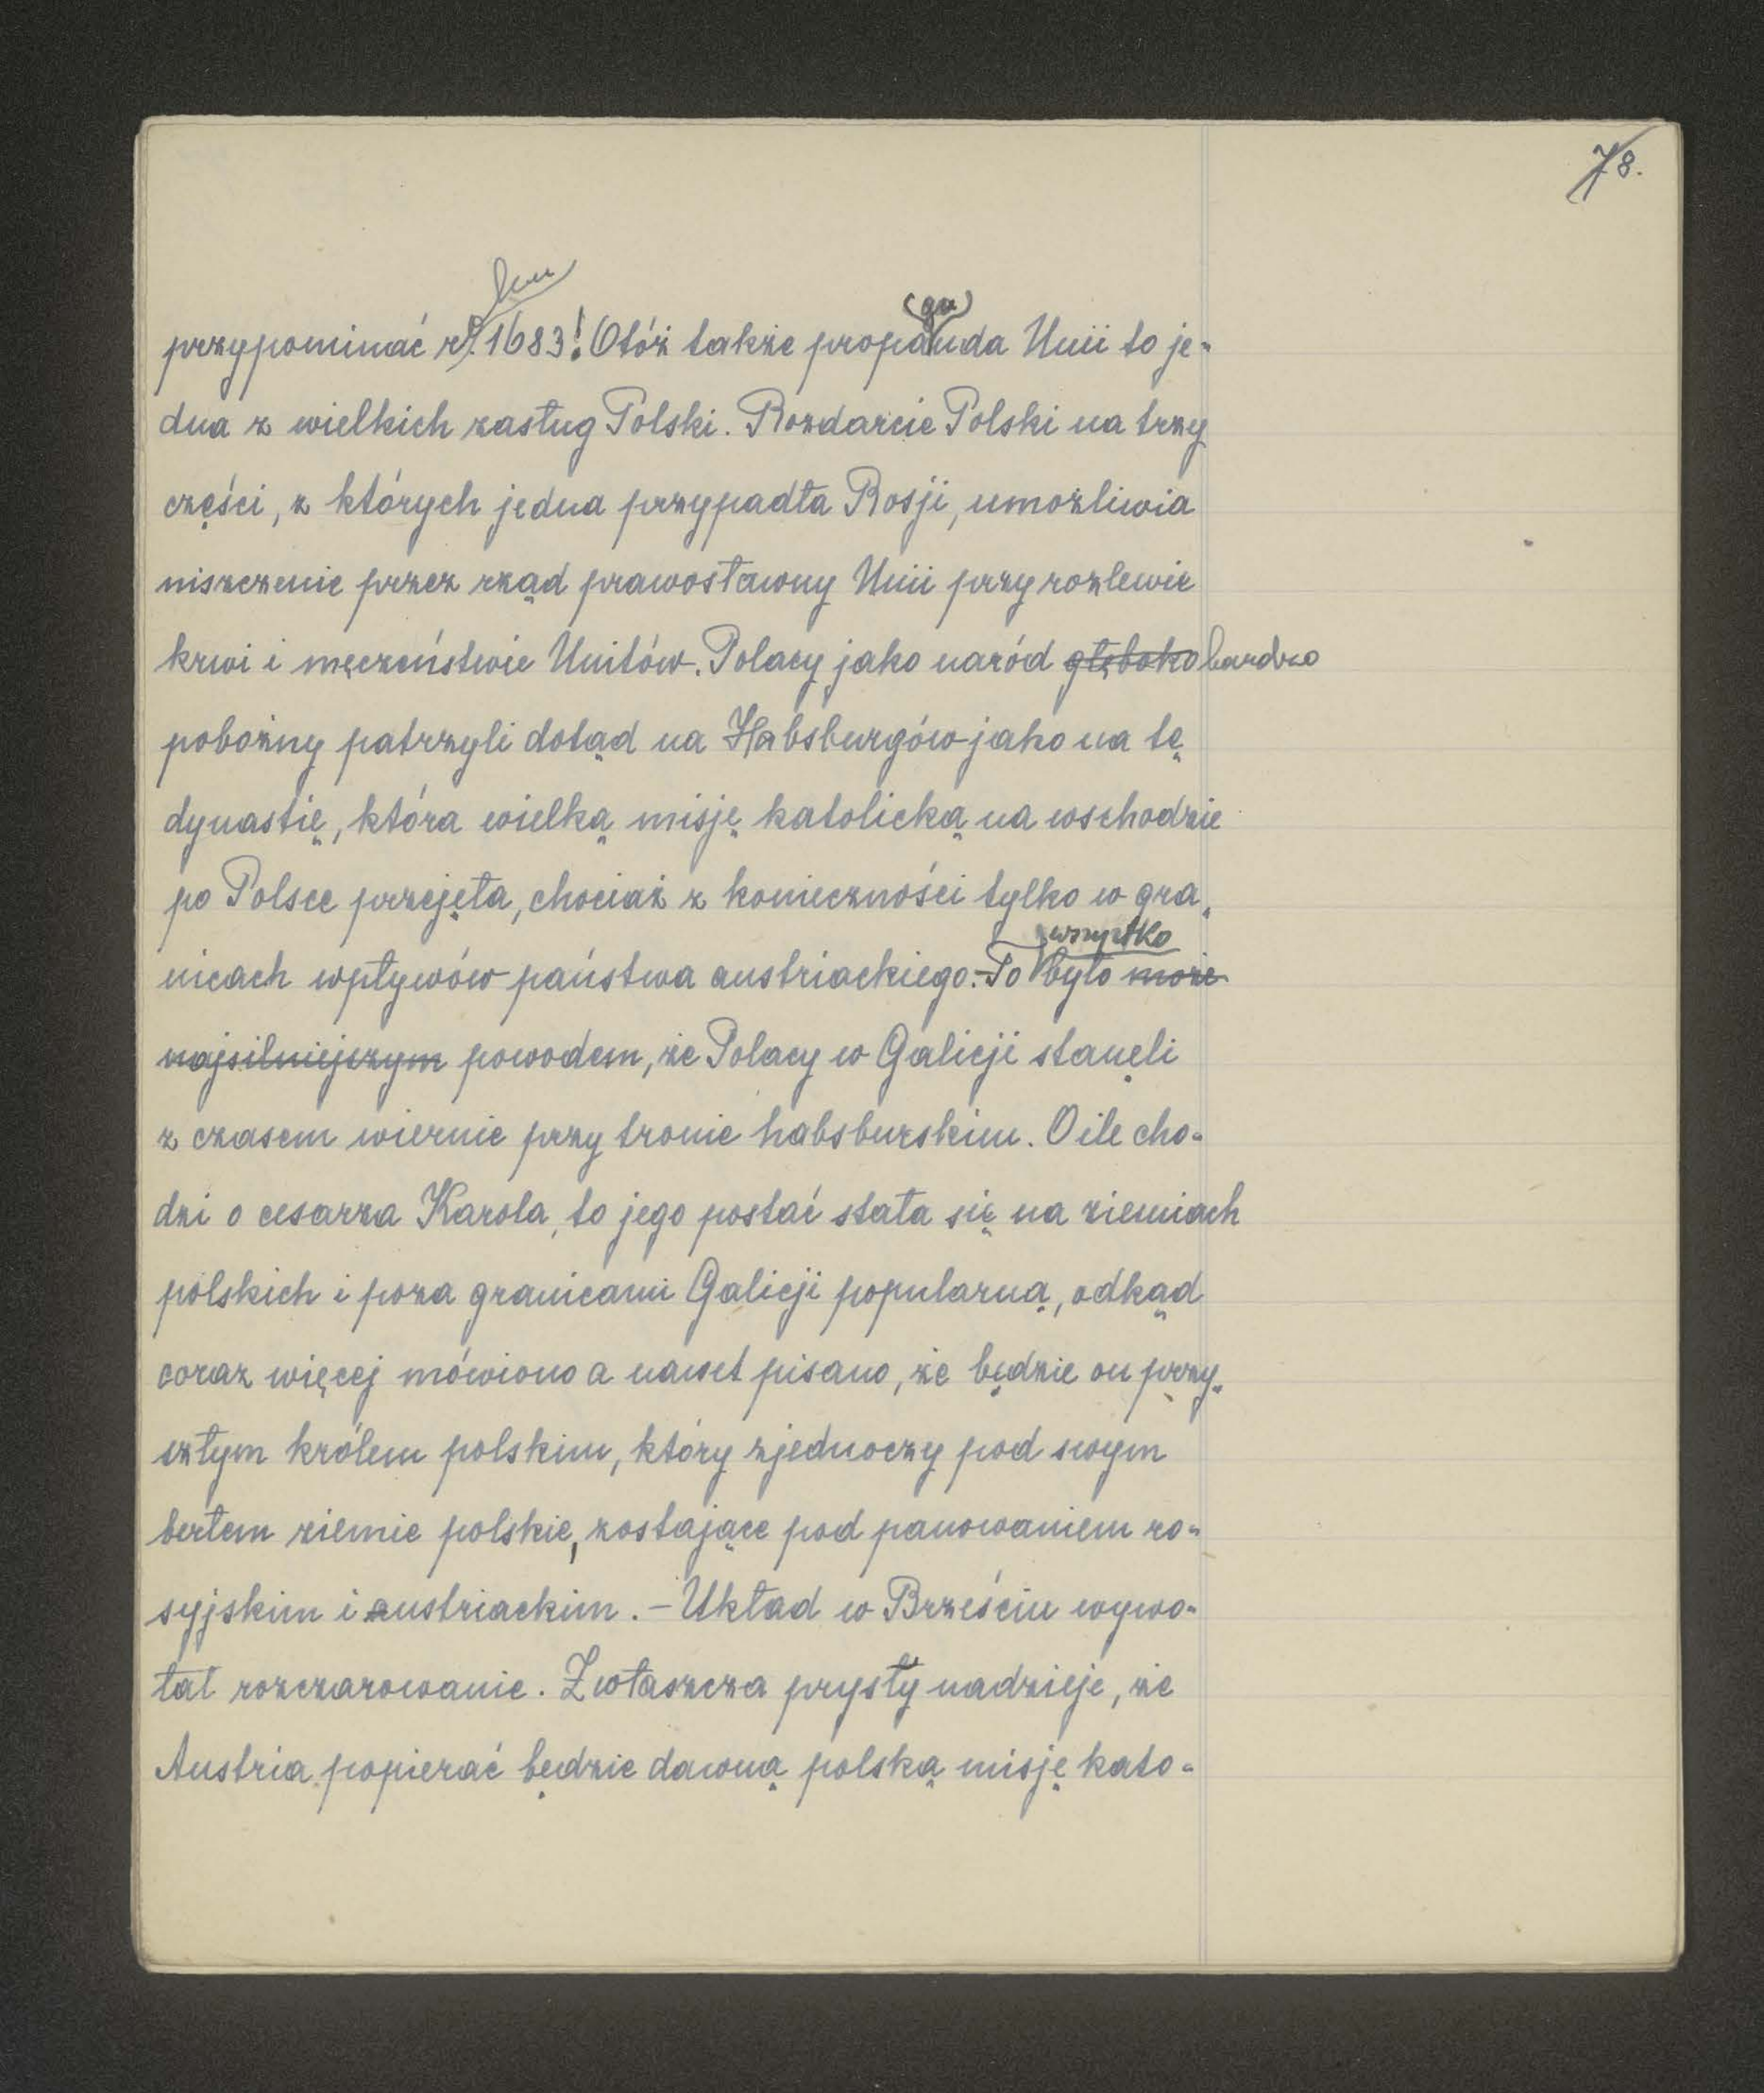 78.
przypominać r. 1683! Otóż także propa(ga)nda Unii to je-
dna z wielkich zasług Polski. Rozdarcie Polski na trzy
części, z których jedna przypadła Rosji, umożliwia
niszczenie przez rząd prawosławny Unii przy rozlewie
krwi i męczeństwie Unitów. Polacy jako naród głęboko bardzo
pobożny patrzyli dotąd na Habsburgów jako na tę
dynastię, która wielką misję katolicką na wschodzie
po Polsce przejęła, chociaż z konieczności tylko w gra-
nicach wpływów państwa austriackiego. - To wszystko było może
najsilniejszym powodem, że Polacy w Galicji stanęli
z czasem wiernie przy tronie habsburskim. O ile cho-
dzi o cesarza Karola, to jego postać stała się na ziemiach
polskich i poza granicami Galicji popularną, odkąd
coraz więcej mówiono a nawet pisano, że będzie on przy-
szłym królem polskim, który zjednoczy pod swym
berłem ziemie polskie, zostające pod panowaniem ro-
syjskim i austriackim. - Układ w Brześciu wywo-
łał rozczarowanie. Zwłaszcza prysły nadzieje, że
Austria popierać będzie dawną polską misję kato-